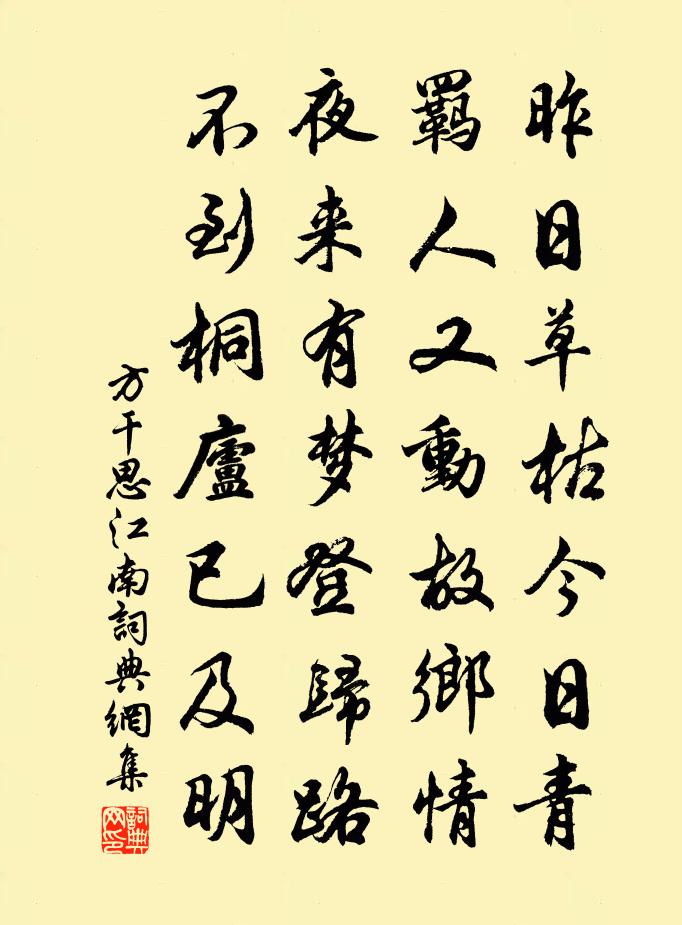 昨日草枯今日青
羈人又動故鄉情
夜来有梦登歸路
不到桐廬已及明
方干思江南詞典網集
詞典網印